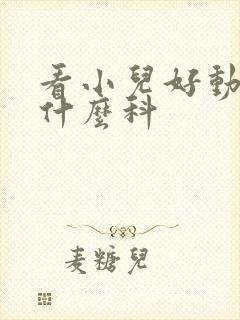 看小兒好動
什麼科
麦糖兒